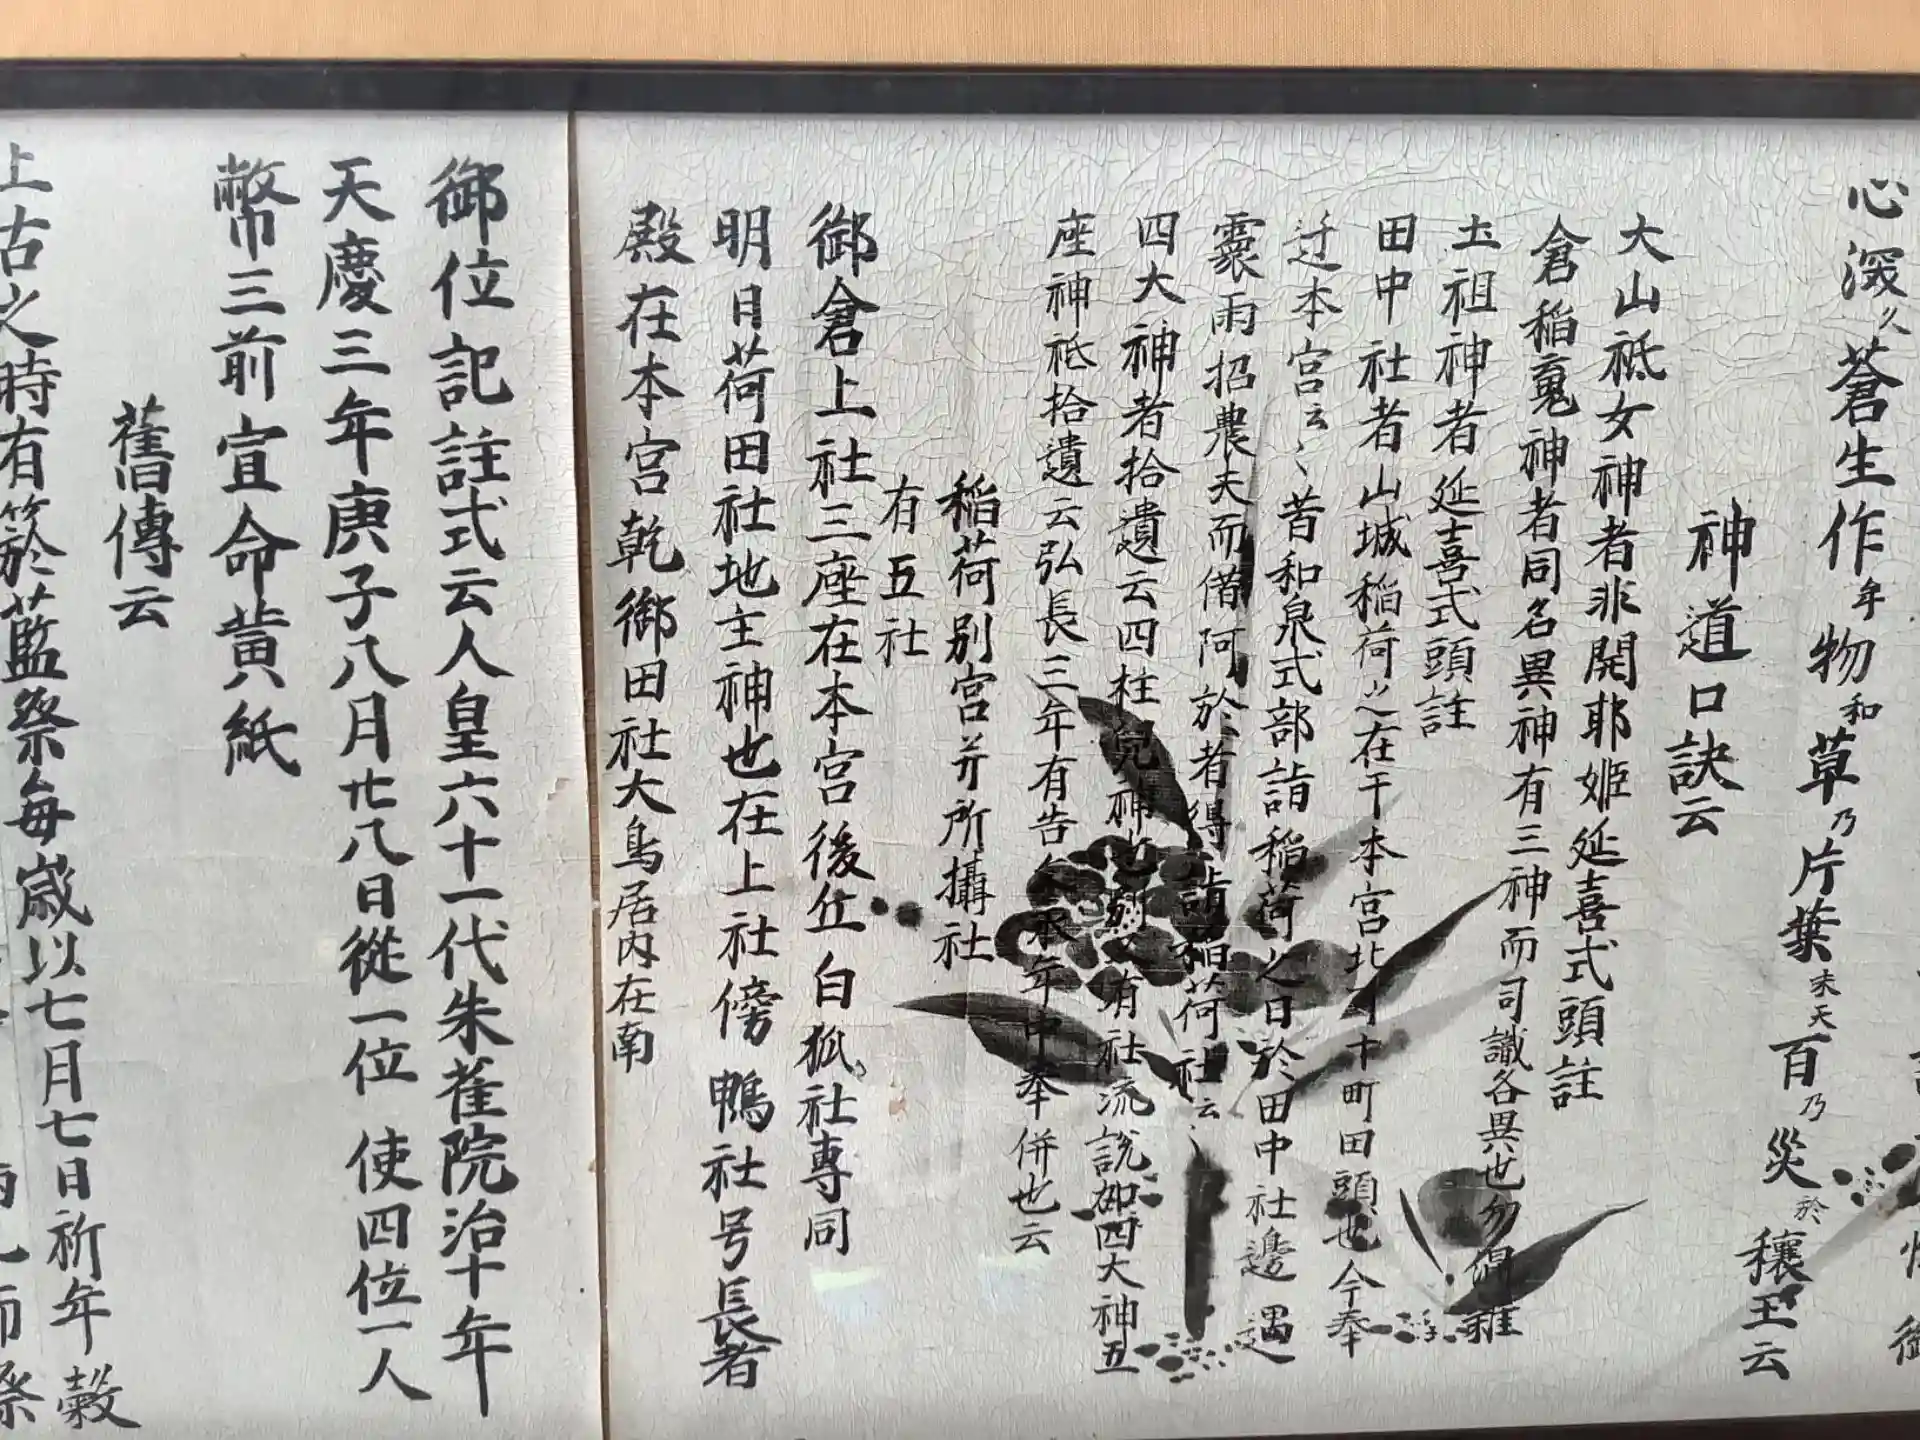 心深久蒼生作牟物和草乃片葉末天百乃災於穰王云
神道口訣云
大山祗女神者非開耶姫延喜式頭註
倉稲䰟神者同名異神有三神而司識各異也勿
土祖神者延喜式頭註
田中社者山城稲荷之在干本宮北可十町田頭也今奉
迁本宮云〻昔和泉式部詣稲荷之日於田中社邊遇
雨招農夫而借阿於者得詣稲荷社云〻
四大神者拾遺云四柱兒神也別又有社流說如四大神五
座神祗拾遺云弘長三年有告文永年中奉併也云
稲荷别宮并所攝社
有五社
御倉上社三座在本宮後丘 白狐社専同
明日荷田社地主神也在上社傍 鴨社号長者
殿在本宮乾御田社大鳥居内在南
御位記註式云人皇六十一代朱雀院治十年
天慶三年庚子八月廿八日從一位 使四位一人
幣三前宣命黄紙
舊傳云
上古之時有於藍祭每歳以七月七日祈年穀